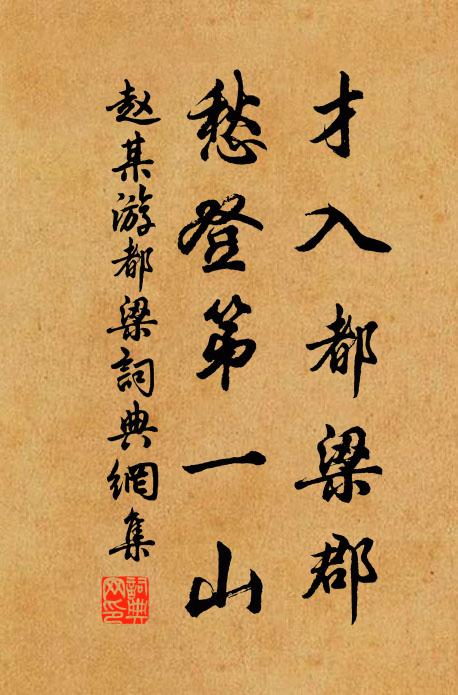 才入都梁郡
愁登第一山
赵某游都梁詞典網集
詞典
网印